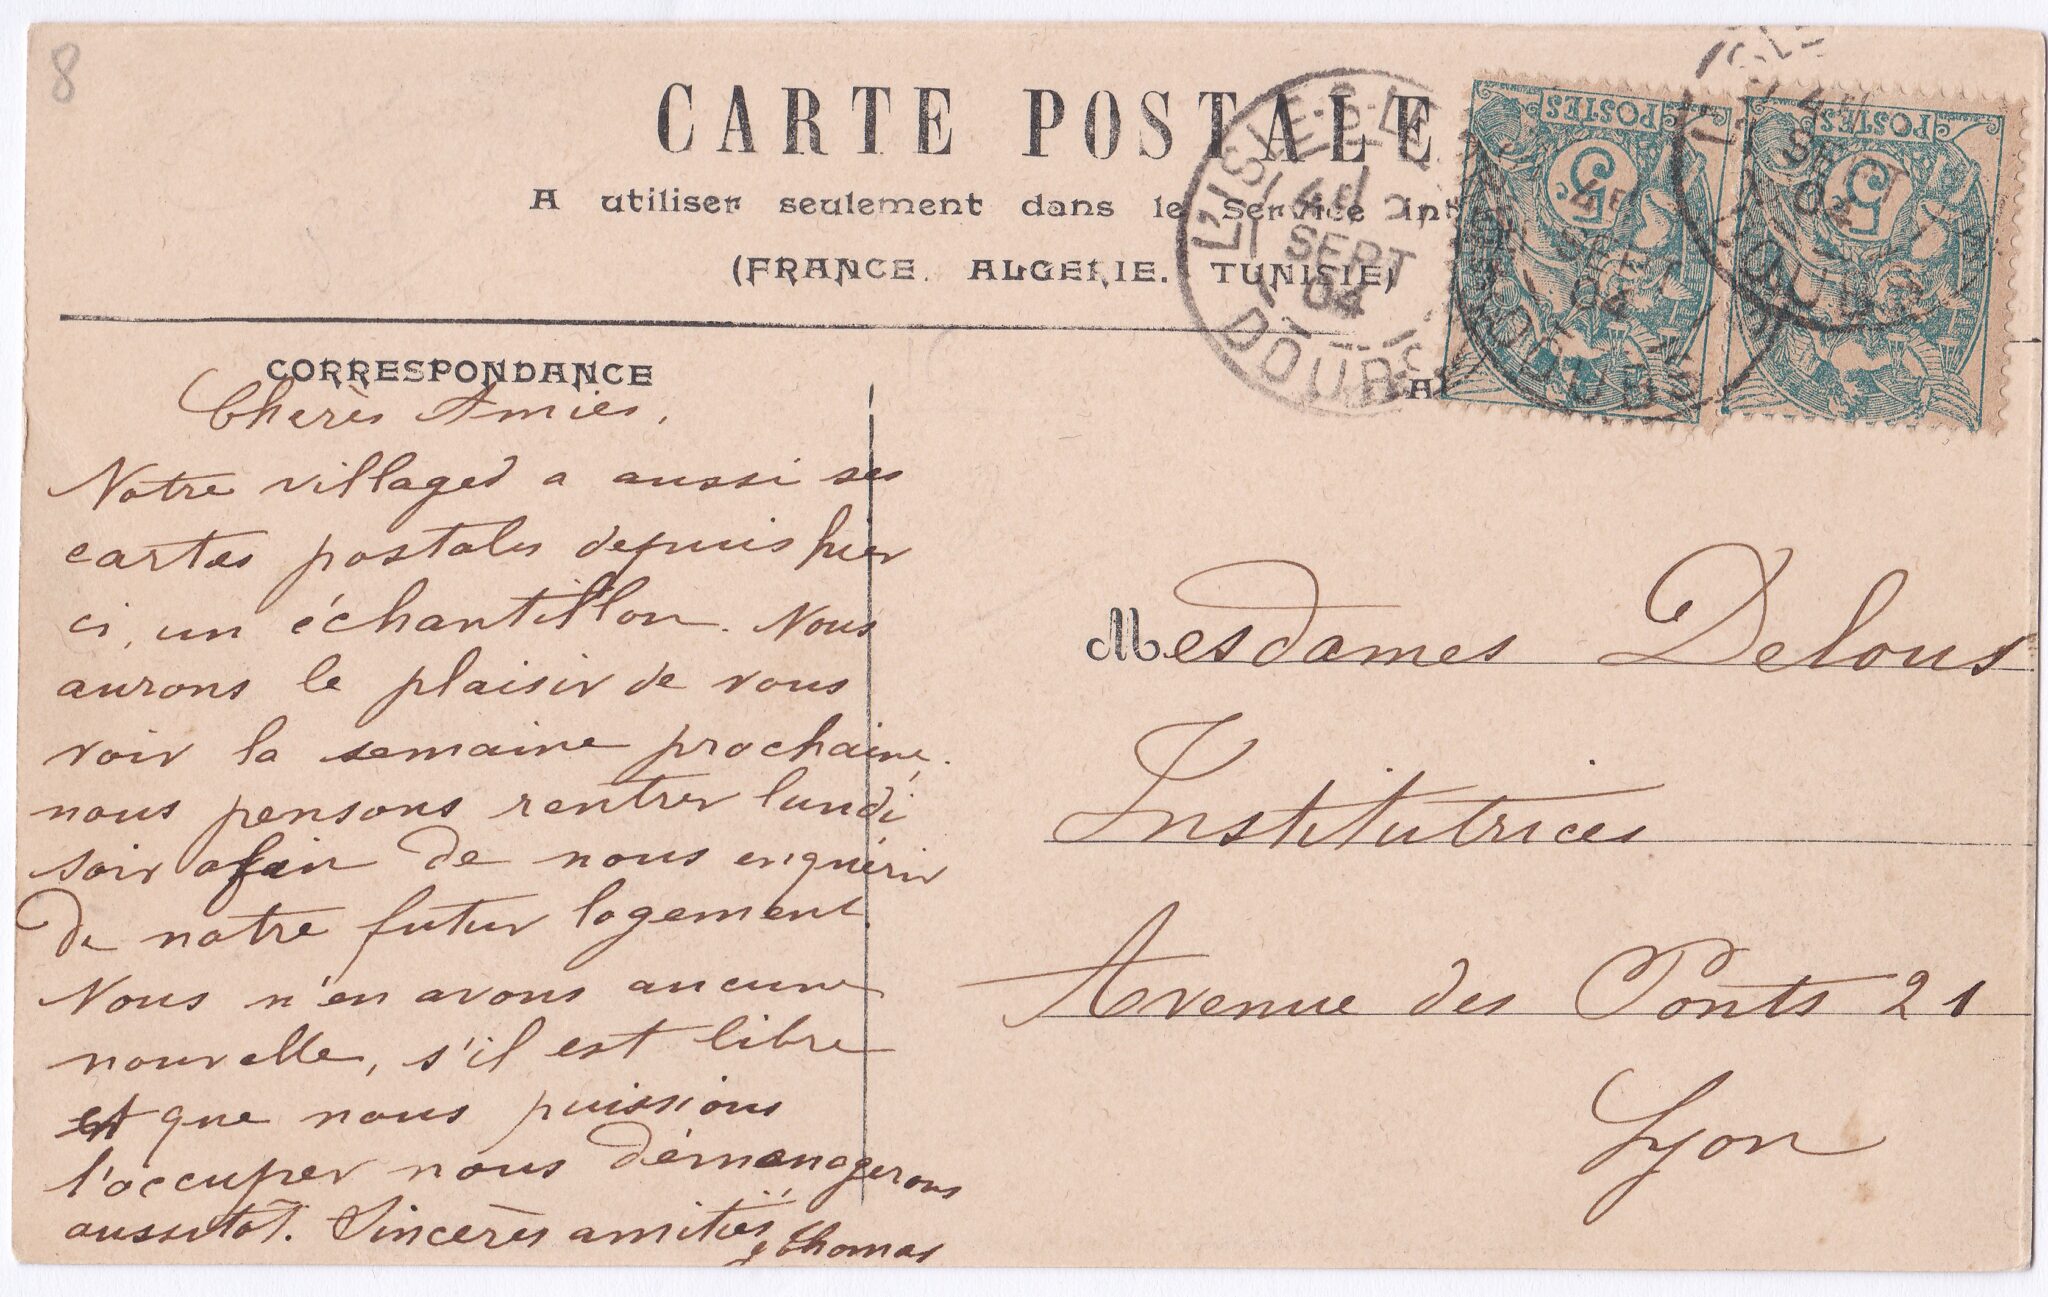 8
CARTE POSTALE
A utiliser seulement dans le Service int
(FRANCE. ALGERIE. TUNISIE)
L'ISLE-S-LE-
4E
1 SEPT
04
DOUBS
POSTES
5 c
4E
SEPT
04
DOUBS
POSTES
5
4E
SEPT
04
DOUBS
CORRESPONDANCE
Cherès Amies,
Notre village a aussi ses
cartes postales depuis hier
ci, un échantillon. Nous
aurons le plaisir de vous
voir la semaine prochaine,
nous pensons rentrer lundi
soir afin de nous enquérir
de notre futur logement
Nous n'en avons aucune
nouvelle, s'il est libre
et que nous puissions
l'occuper nous déménagerons
aussitôt. Sincères amitiés
Thomas
Mesdames Delous
Institutrices
Avenue des Ponts 21
Lyon